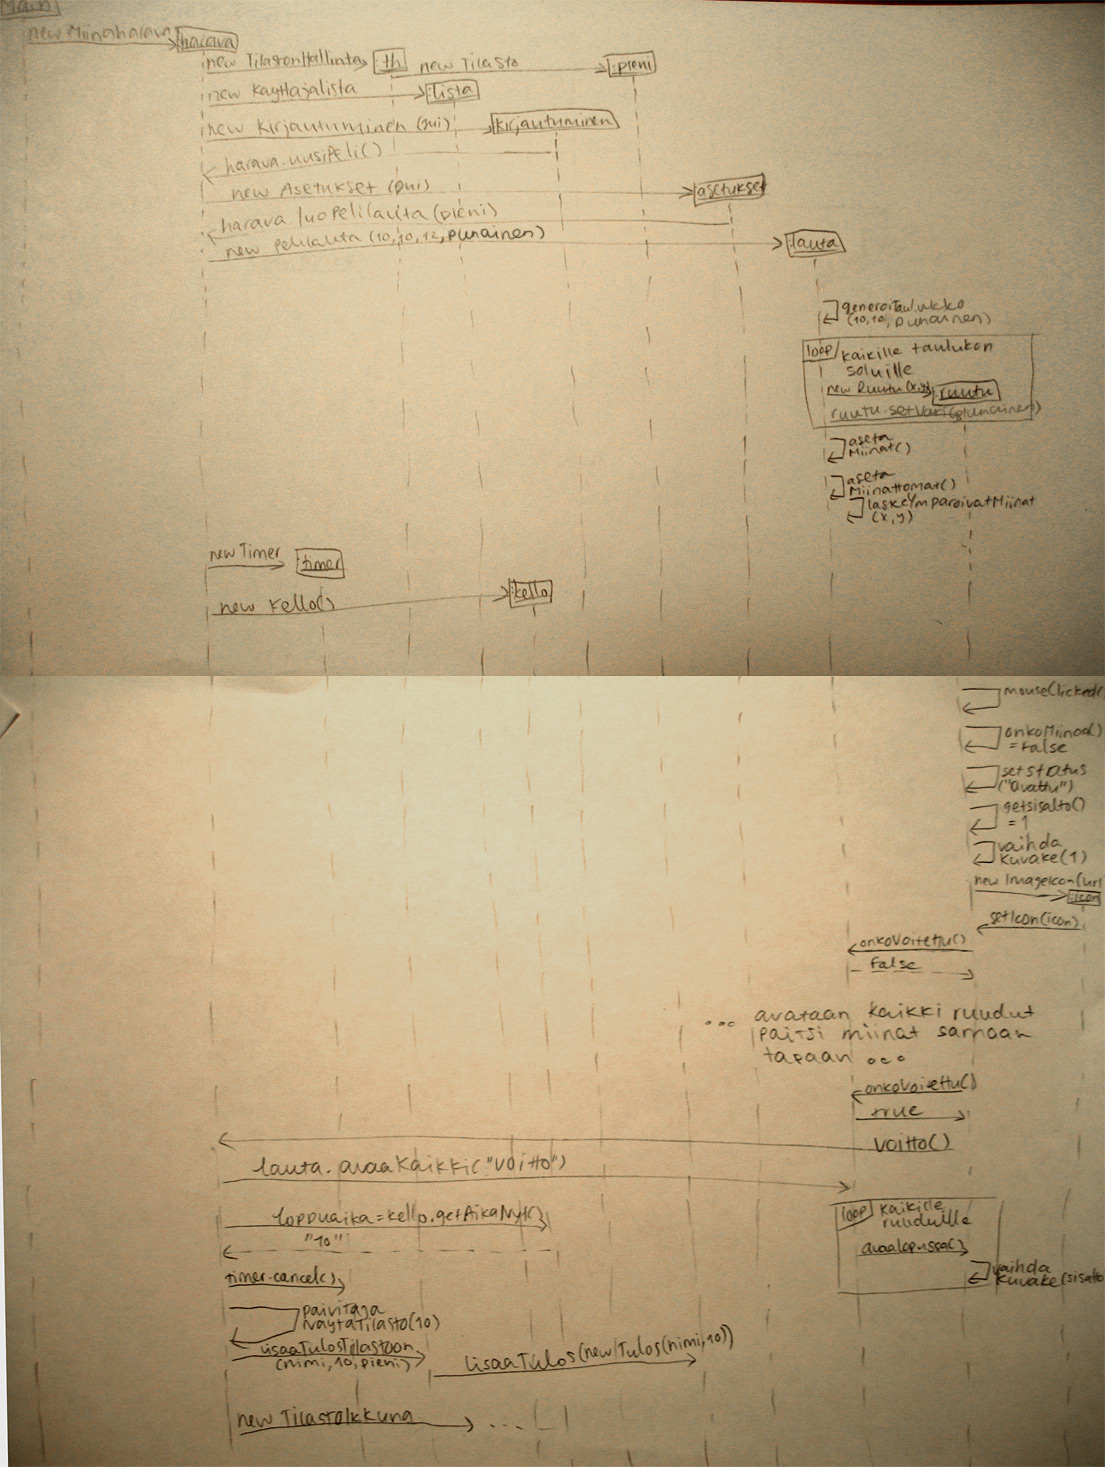 Main
new Miinaharava
:harava
new TilastonHallinta
:th
new Tilasto
:pieni
new Kayttajalista
:lista
new Kirjautuminen (gui)
kirjautuminen
harava.uusiPeli()
new Asetukset (gui)
asetukset
harava.luoPelilauta (pieni)
new Pelilauta (10,10,12, punainen)
:lauta
generoiTaulukko
(10,10, punainen)
loop
kaikille taulukon
soluille
new Ruutu(x,y)
:ruutu
ruutu.setVari(punainen)
aseta
Miinat()
aseta
Miinattomat()
laskeYmparoivatMiinat
(x,y)
new Timer
:timer
new Kello()
:kello
mouseClicked(
onkoMiinoa()
= false
setStatus
("avattu")
getSisalto()
= 1
vaihda
Kuvake(1)
new ImageIcon(url
:icon
setIcon(icon)
onkoVoitettu()
false
... avataan kaikki ruudut
paitsi miinat samaan
tapaan ...
onkoVoitettu()
true
voitto()
lauta.avaaKaikki("voitto")
loop
kaikille
ruuduille
loppuaika=kello.getAikaNyt()
"10"
avaaLopussa()
vaihda
Kuvake(sisalto
timer.cancel()
paivitaJa
NaytaTilasto(10)
lisaaTulosTilastoon
(nimi,10,pieni)
lisaaTulos(new Tulos(nimi,10))
new TilastoIkkuna
...